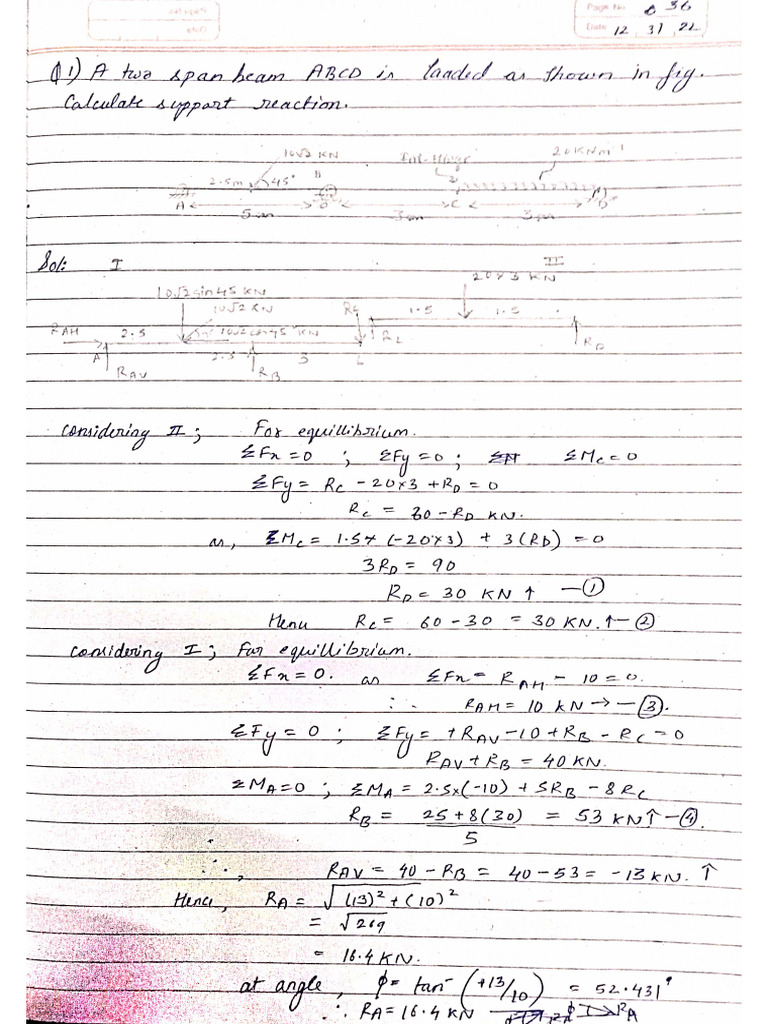 Page No 36
Date 12 31 22
Q1) A two span beam ABCD is loaded as shown in fig.
Calculate support reaction.
10√2 KN
Int-Hinge
20 KNm⁻¹
2.5m 45° B
A 5m 3m C 3m D
Sol: I
II
20×3 KN
10√2 sin 45 KN
10√2 KN
RC 1.5 1.5
RAH 2.5 10√2 cos 45 KN
RD
A 2.5 3
RAV RB
considering II; For equillibrium.
ΣFx=0 ; ΣFy=0; ΣMc=0
ΣFy = Rc - 20×3 + RD = 0
Rc = 60 - RD KN.
as, ΣMc = 1.5× (-20×3) + 3(RD) = 0
3RD = 90
RD = 30 KN ↑ —①
Henu Rc = 60 - 30 = 30 KN.↑—②
considering I; For equillibrium.
ΣFx=0. as ΣFx= RAH - 10 = 0.
∴ RAH = 10 KN → —③.
ΣFy = 0 ; ΣFy = +RAV - 10 + RB - RC = 0
RAV + RB = 40 KN.
ΣMA=0 ; ΣMA = 2.5×(-10) + 5RB - 8RC
RB = 25 + 8(30) / 5 = 53 KN↑—④.
∴, RAV = 40 - RB = 40 - 53 = -13 KN. ↑
Hence, RA = √(13)² + (10)²
= √269
= 16.4 KN.
at angle, ϕ = tan⁻ (+13/10) = 52.431°
∴ RA = 16.4 KN ϕ RA